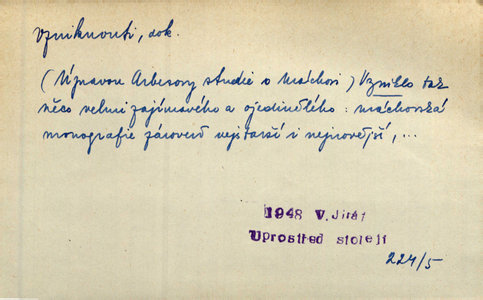 vzniknouti, dok.
(Úpravou Arbesovy studie o Máchovi) Vzniklo tak
něco velmi zajímavého a ojedinělého: máchovská
monografie zároveň nejstarší i nejnovější, ...
1948 V. Jirát
Uprostřed století
224/5